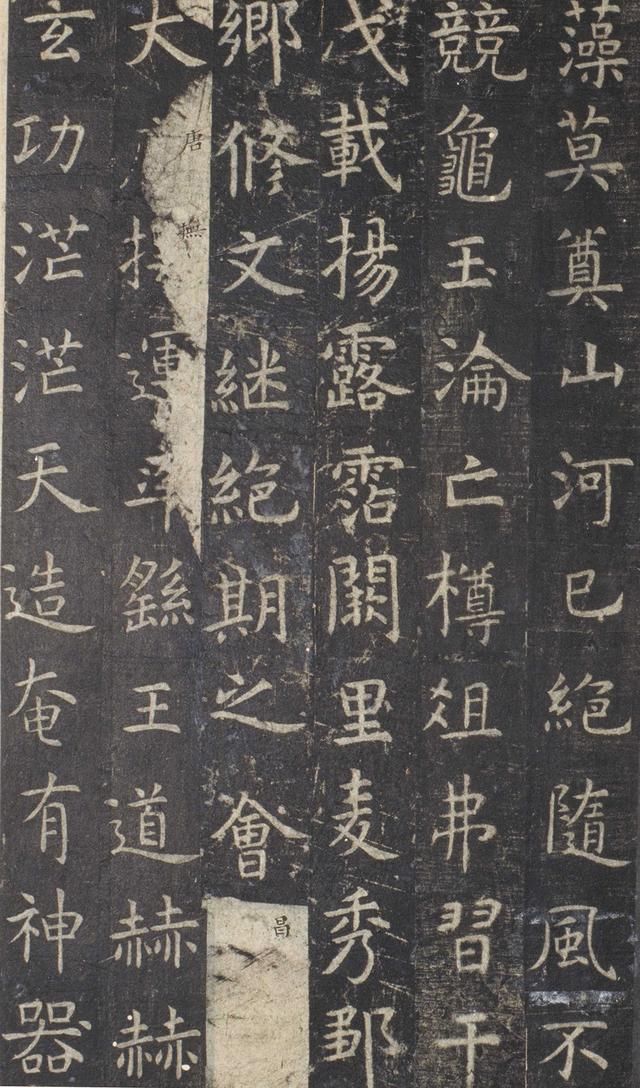 藻莫奠山河已絶隨風不
競龜玉淪亡樽俎弗習干
戈載揚露霑闕里麦秀鄒
鄉脩文継絶期之會昌
大唐撫運率繇王道赫赫
玄功茫茫天造奄有神器